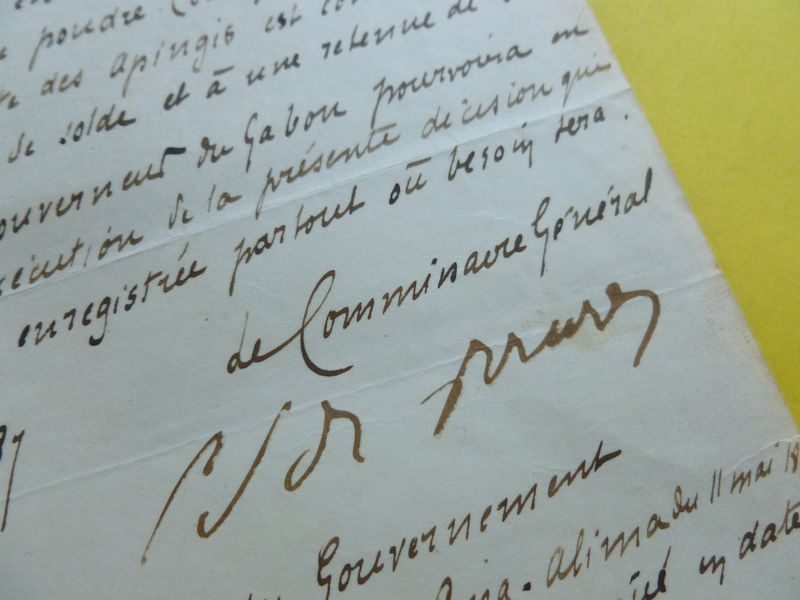 poudre
des Apingis est
de solde et à une retenue de
Gouvernemt du Gabon pourvoira en
exécution de la présente décision qui
enregistrée partout où besoin sera.
de Commissaire Général
87
Gouvernement
Alima du 11 mai 18
en date